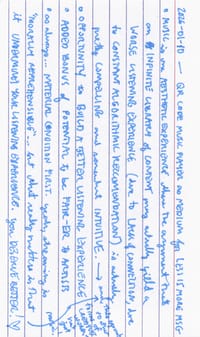 2026-01-10 — QR CODE MUSIC PAPER AS MEDIUM for LESS IS MORE MSG
• MUSIC is an AESTHETIC EXPERIENCE where the ARGUMENT that
an INFINITE LIBRARY of CONTENT may actually yield a
WORSE LISTENING EXPERIENCE (due to LACK of COMPLETION, due
to CONSTANT ALGORITHMIC RECOMMENDATION) is actually
pretty COMPELLING and somewhat INTUITIVE. →
• OPPORTUNITY to BUILD a BETTER LISTENING EXPERIENCE
• ADDED BONUS of POTENTIAL to be PATH to
• as always... MATERIAL CONDITION FIRST. streaming is
"MORALLY REPREHENSIBLE" but what really matters is that
it UNDERMINES YOUR LISTENING EXPERIENCE. you DESERVE BETTER! ♡